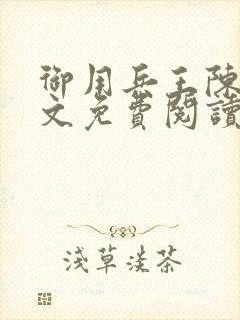 御用兵王陳
文免費閱讀
淺草淡茶